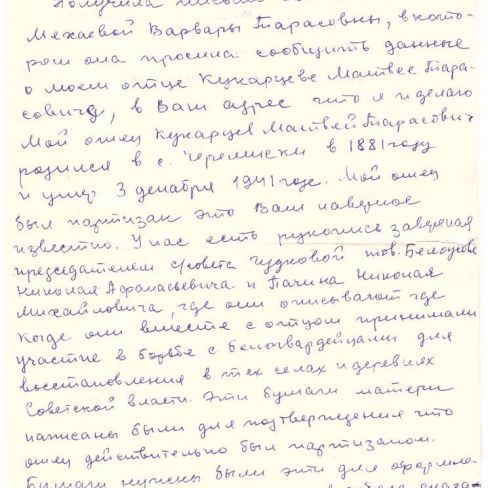 Получила письмо
Мехаевой Варвары Тарасовны, в кото-
ром она просила сообщить данные
о моем отце Кухарцеве Матвее Тара-
совиче, в Ваш адрес что я и делаю
Мой отец Кухарцев Матвей Тарасович
родился в с. Черемиски в 1881 году
и умер 3 декабря 1941 годе. Мой отец
был партизан это Вам наверное
известно. У нас есть рукопись завереная
председателем с/совета тов. Белоусова
Николая Афанасьевича и Пачина Николая
Михайловича, где они описывают где
когда они вместе с отцом принимали
участие в борьбе с белогвардейцами для
восстановления в тех селах и деревнях
Советской власти. Эти бумаги матери
написаны были для подтверждения что
отец действительно был партизаном.
Бумаги нужны были эти для оформле-